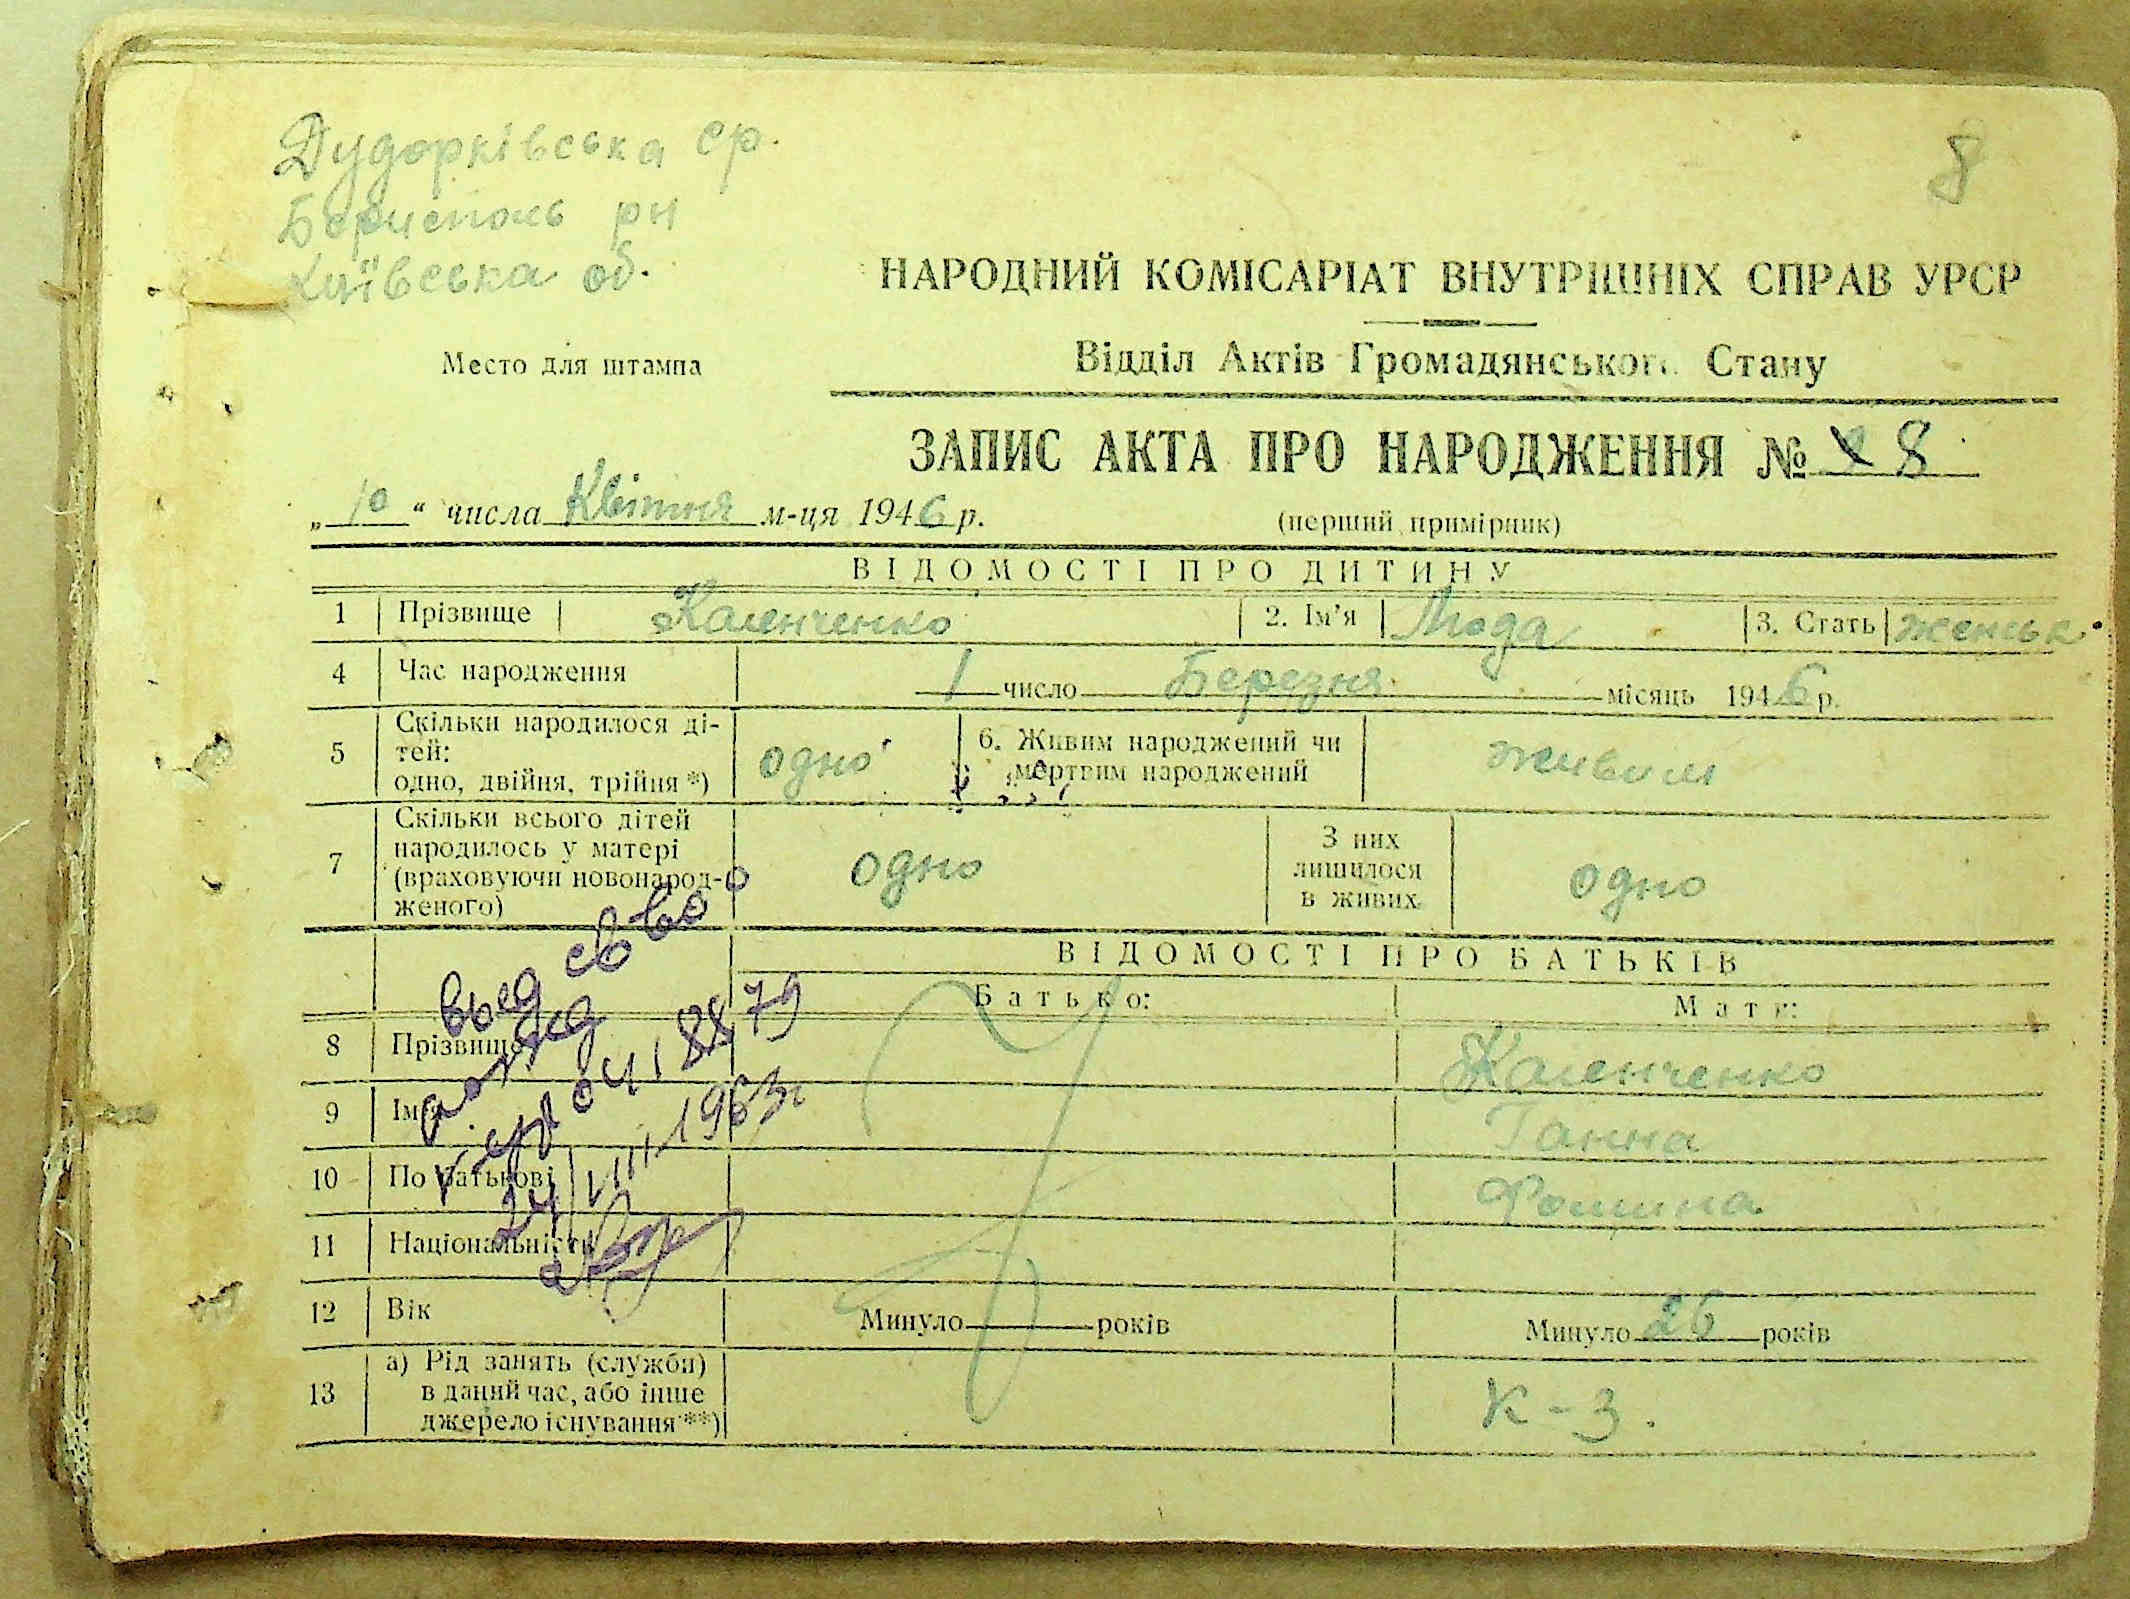 Дударківська ср.
8
Борисполь рн
Київська об.
НАРОДНИЙ КОМІСАРІАТ ВНУТРІШНІХ СПРАВ УРСР
Место для штампа
Відділ Актів Громадянського Стану
ЗАПИС АКТА ПРО НАРОДЖЕННЯ № 8
„10“ числа Квітня м-ця 1946 р.
(перший примірник)
ВІДОМОСТІ ПРО ДИТИНУ
1 Прізвище Каленченко 2. Ім’я Люда 3. Стать женськ.
4 Час народження 1 число Березня місяць 1946 р.
5 Скільки народилося ді-
тей:
одно, двійня, трійня *)
одно
6. Живим народжений чи
мертвим народжений
живим
7 Скільки всього дітей
народилось у матері
(враховуючи новонарод-
женого)
одно
З них
лишилося
в живих
одно
ВІДОМОСТІ ПРО БАТЬКІВ
Батько: Мати:
8 Прізвище Каленченко
9 Ім’я Ганна
10 По батькові Фомина
11 Національність
12 Вік Минуло років Минуло 26 років
13 а) Рід занять (служби)
в даний час, або інше
джерело існування **)
к-з.
выд св во
о рожд
24/VIII 1963 г